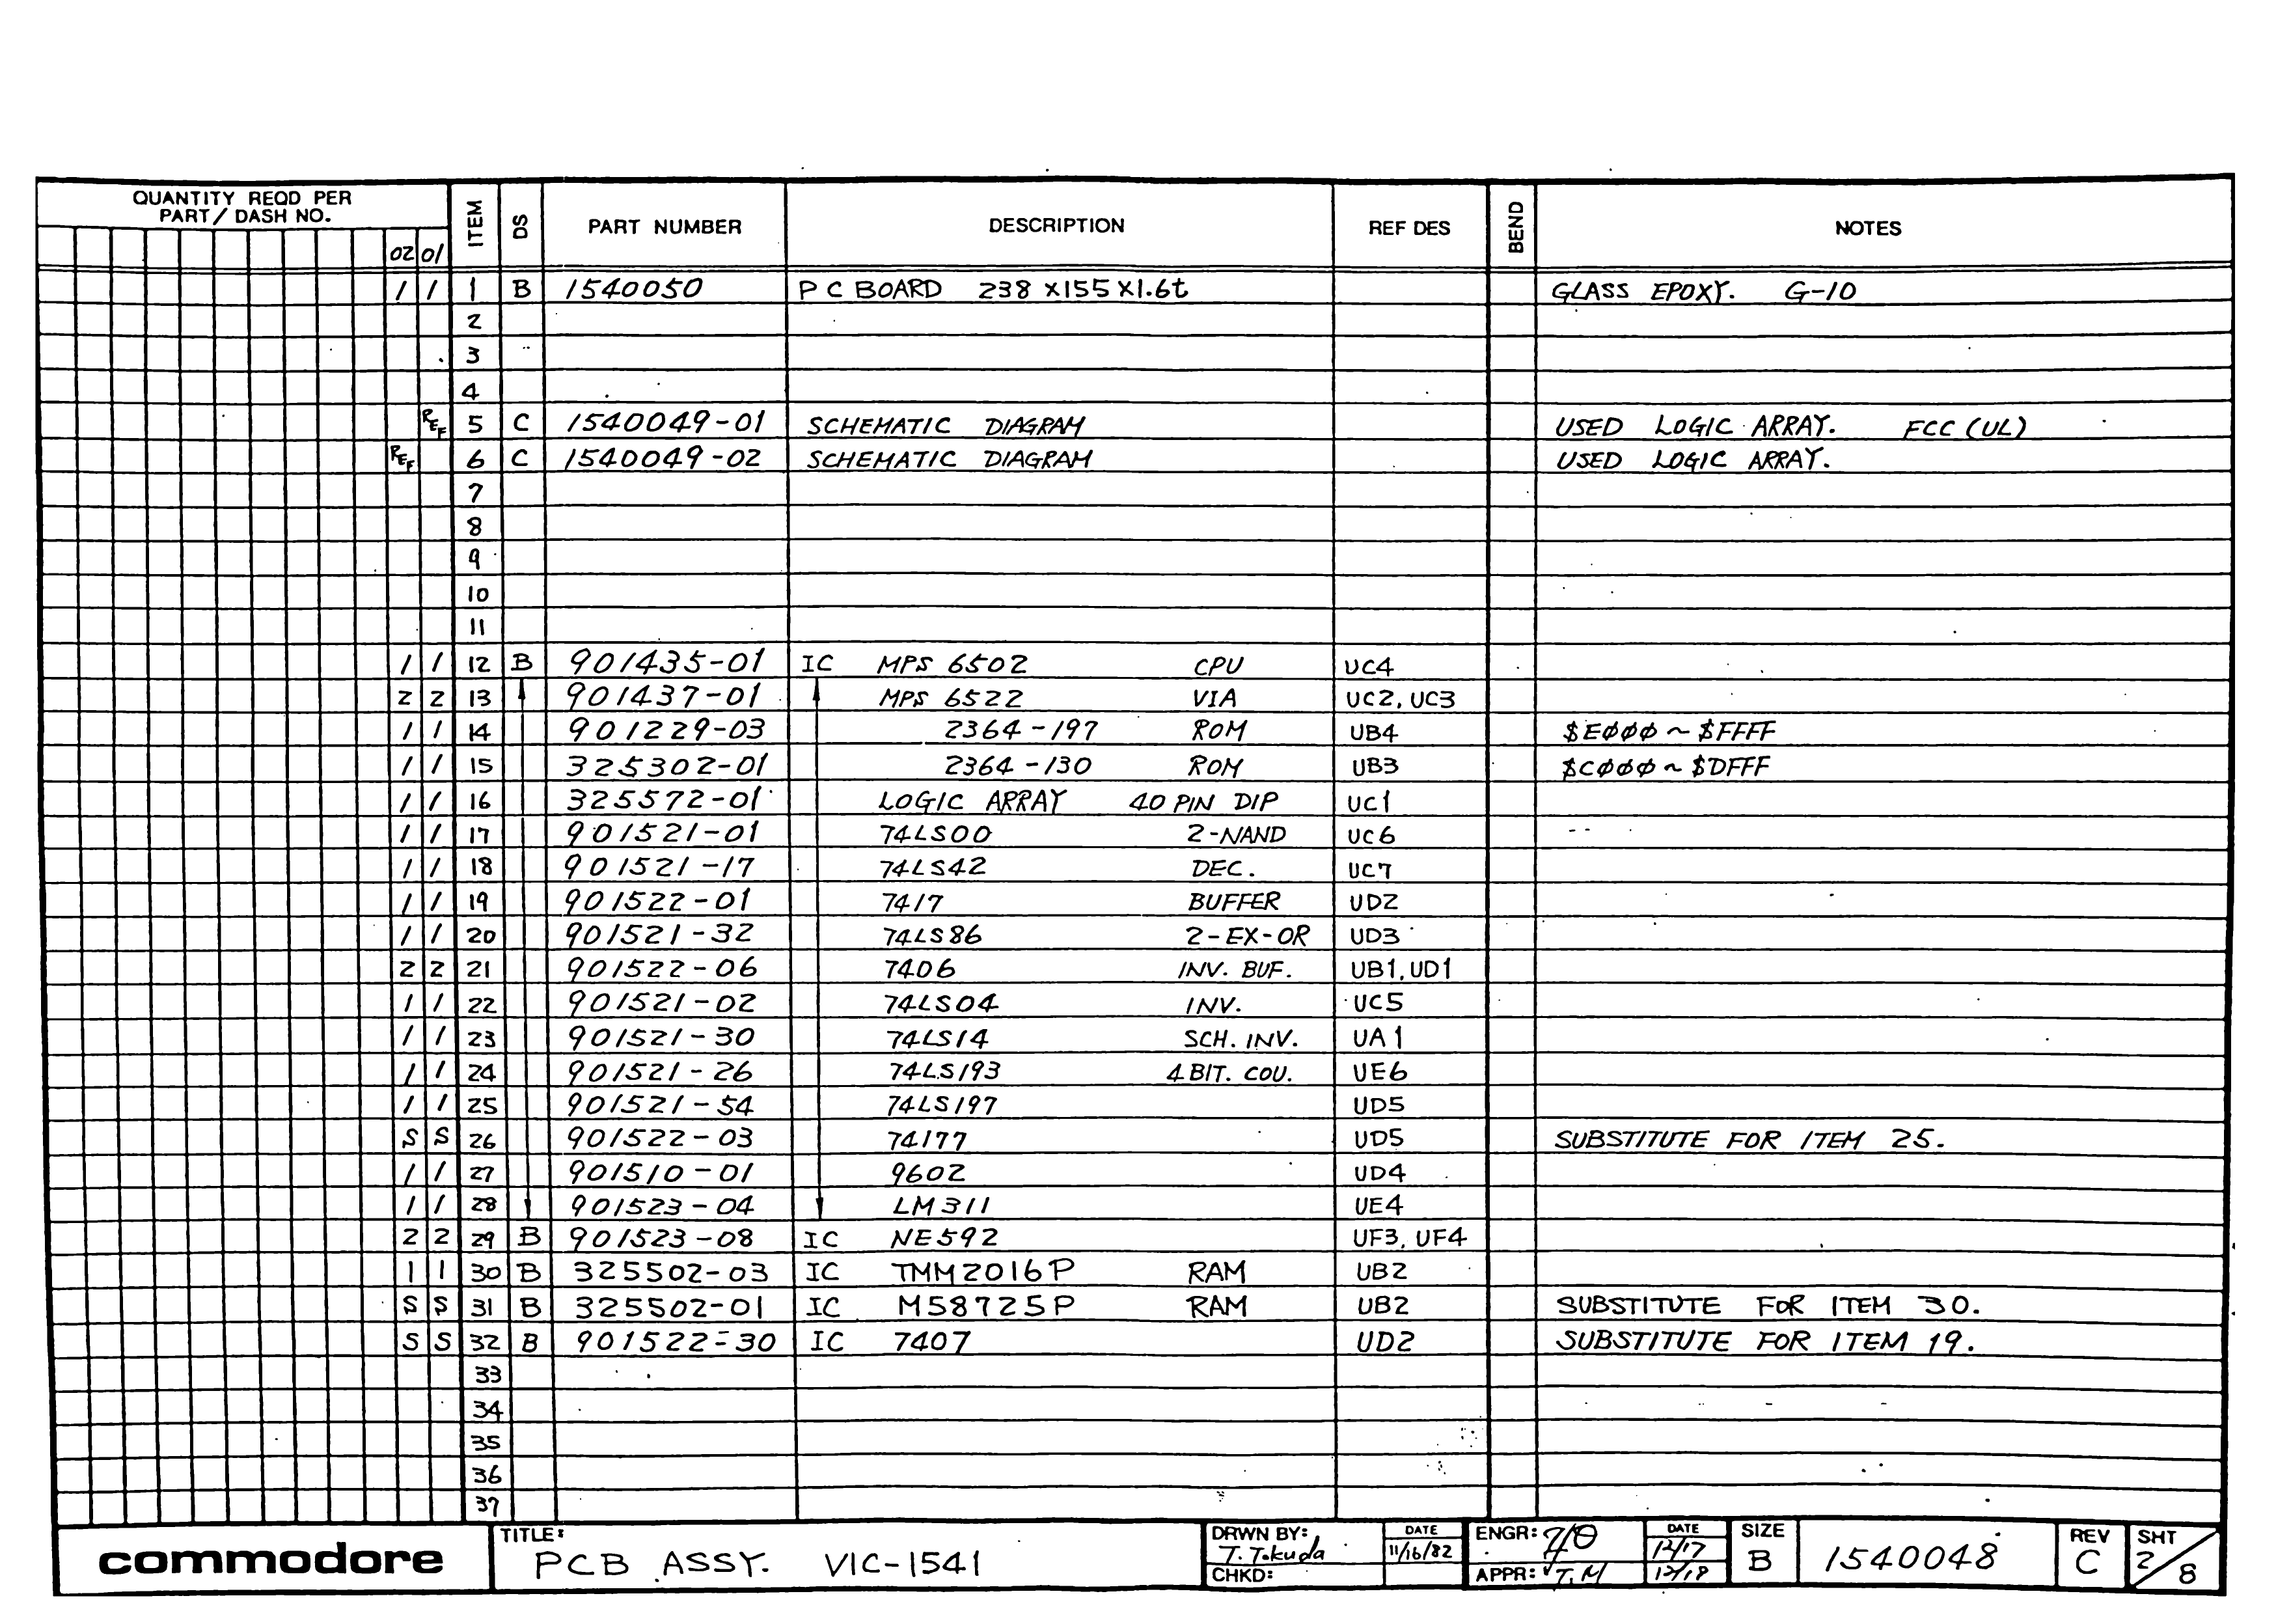 QUANTITY REQD PER
PART / DASH NO.
02 01 ITEM DS PART NUMBER DESCRIPTION REF DES BEND NOTES
1 1 1 B 1540050 P C BOARD 238 X155 X1.6t GLASS EPOXY. G-10
2
3
4
REF 5 C 1540049-01 SCHEMATIC DIAGRAM USED LOGIC ARRAY. FCC (UL)
REF 6 C 1540049-02 SCHEMATIC DIAGRAM USED LOGIC ARRAY.
7
8
9
10
11
1 1 12 B 901435-01 IC MPS 6502 CPU UC4
2 2 13 901437-01 MPS 6522 VIA UC2, UC3
1 1 14 901229-03 2364-197 ROM UB4 $EØØØ ~ $FFFF
1 1 15 325302-01 2364-130 ROM UB3 $CØØØ ~ $DFFF
1 1 16 325572-01 LOGIC ARRAY 40 PIN DIP UC1
1 1 17 901521-01 74LS00 2-NAND UC6
1 1 18 901521-17 74LS42 DEC. UC7
1 1 19 901522-01 7417 BUFFER UD2
1 1 20 901521-32 74LS86 2-EX-OR UD3
2 2 21 901522-06 7406 INV. BUF. UB1, UD1
1 1 22 901521-02 74LS04 INV. UC5
1 1 23 901521-30 74LS14 SCH. INV. UA1
1 1 24 901521-26 74LS193 4 BIT. COU. UE6
1 1 25 901521-54 74LS197 UD5
S S 26 901522-03 74177 UD5 SUBSTITUTE FOR ITEM 25.
1 1 27 901510-01 9602 UD4
1 1 28 901523-04 LM311 UE4
2 2 29 B 901523-08 IC NE592 UF3, UF4
1 1 30 B 325502-03 IC TMM2016P RAM UB2
S S 31 B 325502-01 IC M58725P RAM UB2 SUBSTITUTE FOR ITEM 30.
S S 32 B 901522-30 IC 7407 UD2 SUBSTITUTE FOR ITEM 19.
33
34
35
36
37
commodore
TITLE:
PCB ASSY. VIC-1541
DRWN BY: T. Tokuda
DATE 11/16/82
CHKD:
ENGR:
DATE 12/17
APPR: T.M 12/18
SIZE B
1540048
REV C
SHT 2/8